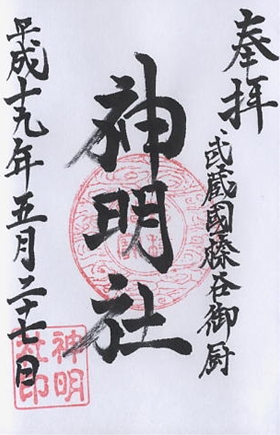 奉拝
武蔵國榛谷御厨
神明社
平成十九年五月二十七日
神明
社印